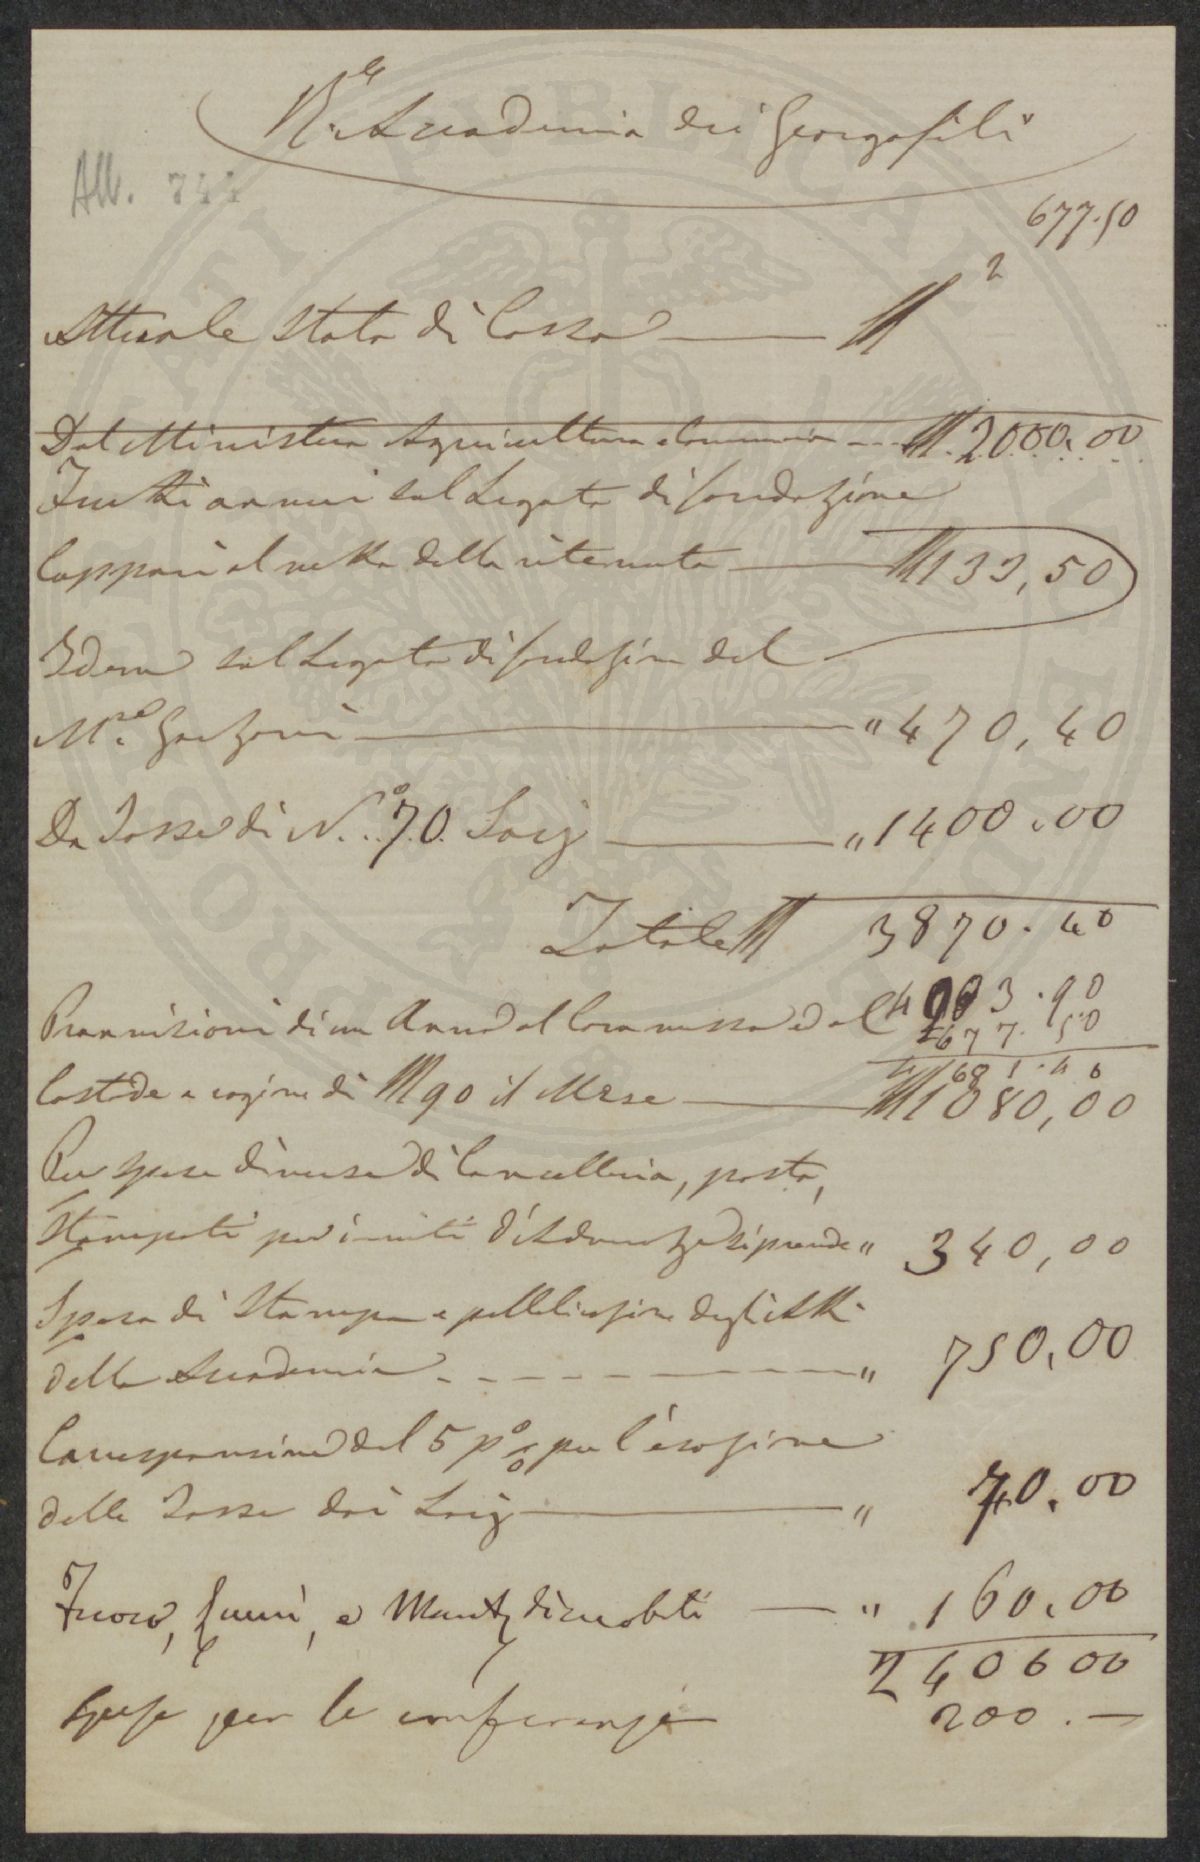 R.le Accademia dei Georgofili
All. 744
677.50
Attuale Stato di Cassa — £ 2
Dal Ministero Agricoltura e Commercio — £ 2000.00
Frutti annui sul Legato di fondazione
Cuppari al netto della ritenuta — £ 133,50
Idem sul Legato di fondazione del
M.se Garzoni — " 470,40
Da Tasse di N.° 70 Socj — " 1400.00
Totale £ 3870.40
4003.90
677.50
4681.40
Provvisioni di un Anno al Commesso e al
Custode a ragione di £ 90 il Mese — £ 1080,00
Per spese diverse di Cancelleria, posta,
Stampati per inviti d'Adunanze si prende " 340,00
Spesa di Stampa e pubblicazione degli Atti
della Accademia — " 750,00
Corresponsione del 5 p% per l'esazione
delle Tasse dei Socj — " 70.00
Fuoco, Lumi, e Mant. di mobili — " 160.00
2400 00
Spese per le conferenze 200.—